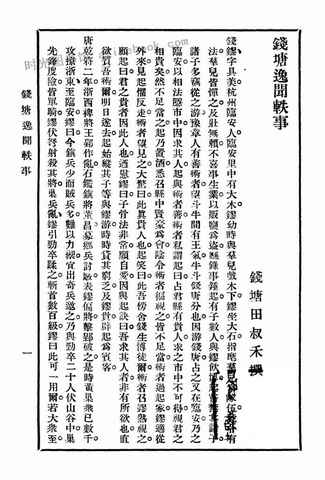 錢塘逸聞軼事
錢塘田叔禾撰
錢鏐字具美杭州臨安人臨安里中有大木鏐幼時與羣兒戲木下鏐坐大石指麾羣兒爲隊伍
法羣兒皆憚之及壯無賴不喜事生業以販鹽爲盜縣錄事鍾起有子數人與鏐飲
諸子多竊從之游豫章人有善術者望斗牛間有王氣斗牛錢唐分也因游錢唐占之又在臨安乃之
臨安以相法隱市中因求其人起與術者善術者私謂起曰占君縣有貴人求之市中不可得視君之
相貴矣然不足當之起乃置酒悉召縣中賢豪爲會陰令術者徧視之皆不足當術者過起家鏐適從
外來見起懼反走術者望見之大驚曰此眞貴人也起笑曰此吾旁舍錢生爾術者召鏐熟視之
顧起曰君之貴者因此人也乃慰鏐曰子骨法非常願自愛因與起訣曰吾求其人者非有所欲也直
欲質吾術爾明日遂去起始縱其子等與鏐游時時貸其窮乏及鏐貴辟起爲賓客
唐乾符二年浙西裨將王郢作亂石鑑鎮將董昌募鄉兵討賊表鏐偏將擊郢破之是時黃巢衆已數千
攻掠浙東至臨安鏐曰今鎮兵少而賊兵多難以力禦宜出奇兵邀之乃與勁卒二十人伏山谷中巢
先鋒度險皆單騎鏐伏弩射殺其將巢兵亂鏐引勁卒蹂之斬首數百級鏐曰此可一用爾若大衆至
錢塘逸聞軼事
一